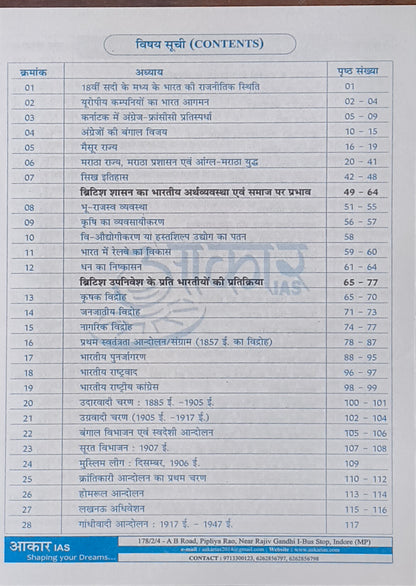 विषय सूची (CONTENTS)
क्रमांक अध्याय पृष्ठ संख्या
01 18वीं सदी के मध्य के भारत की राजनीतिक स्थिति 01
02 यूरोपीय कम्पनियों का भारत आगमन 02 - 04
03 कर्नाटक में अंग्रेज-फ्रांसीसी प्रतिस्पर्धा 05 - 09
04 अंग्रेजों की बंगाल विजय 10 - 15
05 मैसूर राज्य 16 - 19
06 मराठा राज्य, मराठा प्रशासन एवं आंग्ल-मराठा युद्ध 20 - 41
07 सिख इतिहास 42 - 48
ब्रिटिश शासन का भारतीय अर्थव्यवस्था एवं समाज पर प्रभाव 49 - 64
08 भू-राजस्व व्यवस्था 51 - 55
09 कृषि का व्यवसायीकरण 56 - 57
10 वि-औद्योगीकरण या हस्तशिल्प उद्योग का पतन 58
11 भारत में रेलवे का विकास 59 - 60
12 धन का निष्कासन 61 - 64
ब्रिटिश उपनिवेश के प्रति भारतीयों की प्रतिक्रिया 65 - 77
13 कृषक विद्रोह 65 - 70
14 जनजातीय-विद्रोह 71 - 73
15 नागरिक विद्रोह 74 - 77
16 प्रथम स्वतंत्रता आन्दोलन/संग्राम (1857 ई. का विद्रोह) 78 - 87
17 भारतीय पुनर्जागरण 88 - 95
18 भारतीय राष्ट्रवाद 96 - 97
19 भारतीय राष्ट्रीय कांग्रेस 98 - 99
20 उदारवादी चरण : 1885 ई. -1905 ई. 100 - 101
21 उग्रवादी चरण (1905 ई. -1917 ई.) 102 - 104
22 बंगाल विभाजन एवं स्वदेशी आन्दोलन 105 - 106
23 सूरत विभाजन : 1907 ई. 107 - 108
24 मुस्लिम लीग : दिसम्बर, 1906 ई. 109
25 क्रांतिकारी आन्दोलन का प्रथम चरण 110 - 112
26 होमरूल आन्दोलन 113 - 114
27 लखनऊ अधिवेशन 115 - 116
28 गांधीवादी आन्दोलन : 1917 ई. - 1947 ई. 117
आकार IAS
आकार IAS
Shaping your Dreams...
178/2/4 - A B Road, Pipliya Rao, Near Rajiv Gandhi I-Bus Stop, Indore (MP)
e-mail : aakarias2014@gmail.com | Website : www.aakarias.com
CONTACT : 9713300123, 6262856797, 6262856798